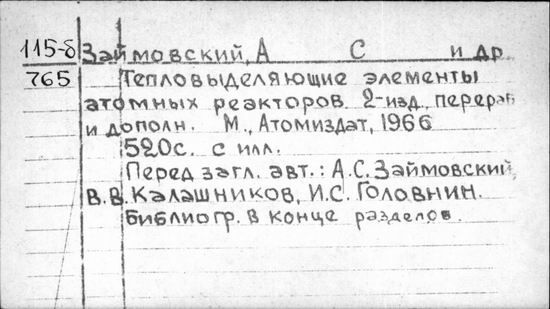 115-б Займовский, А С и др
765 Тепловыделяющие элементы
атомных реакторов. 2-изд., перераб
и дополн. М., Атомиздат, 1966
520с. с илл.
Перед загл. авт.: А.С. Займовский,
В.В. Калашников, И.С. Головнин.
Библиогр. в конце разделов.